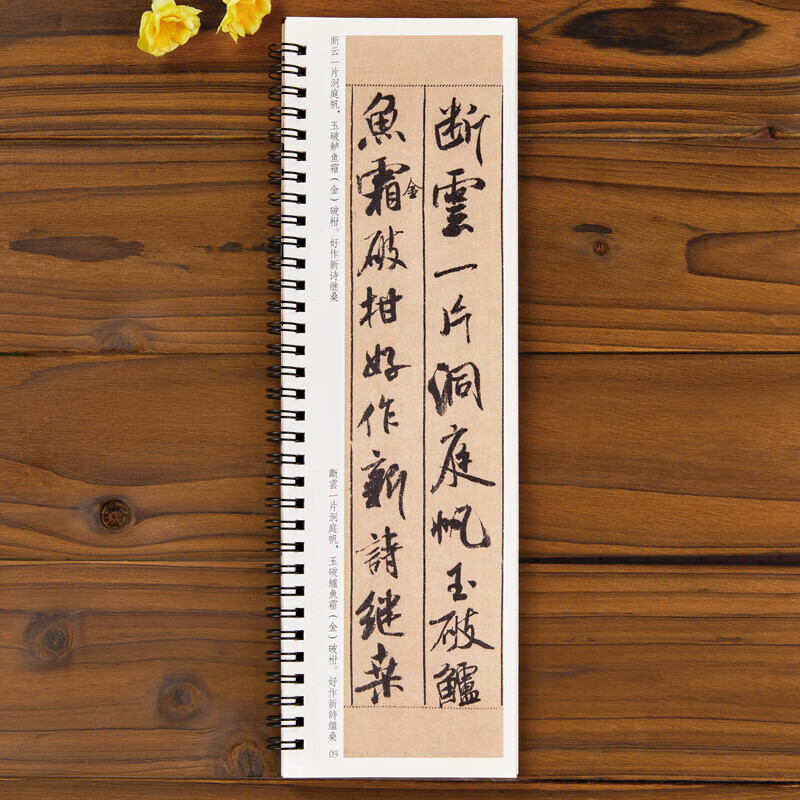 断雲一片洞庭帆玉破鱸
魚霜金破柑好作新詩继桑
断云一片洞庭帆，玉破鲈鱼霜（金）破柑。好作新诗继桑
斷雲一片洞庭帆，玉破鱸魚霜（金）破柑。好作新詩繼桑
09